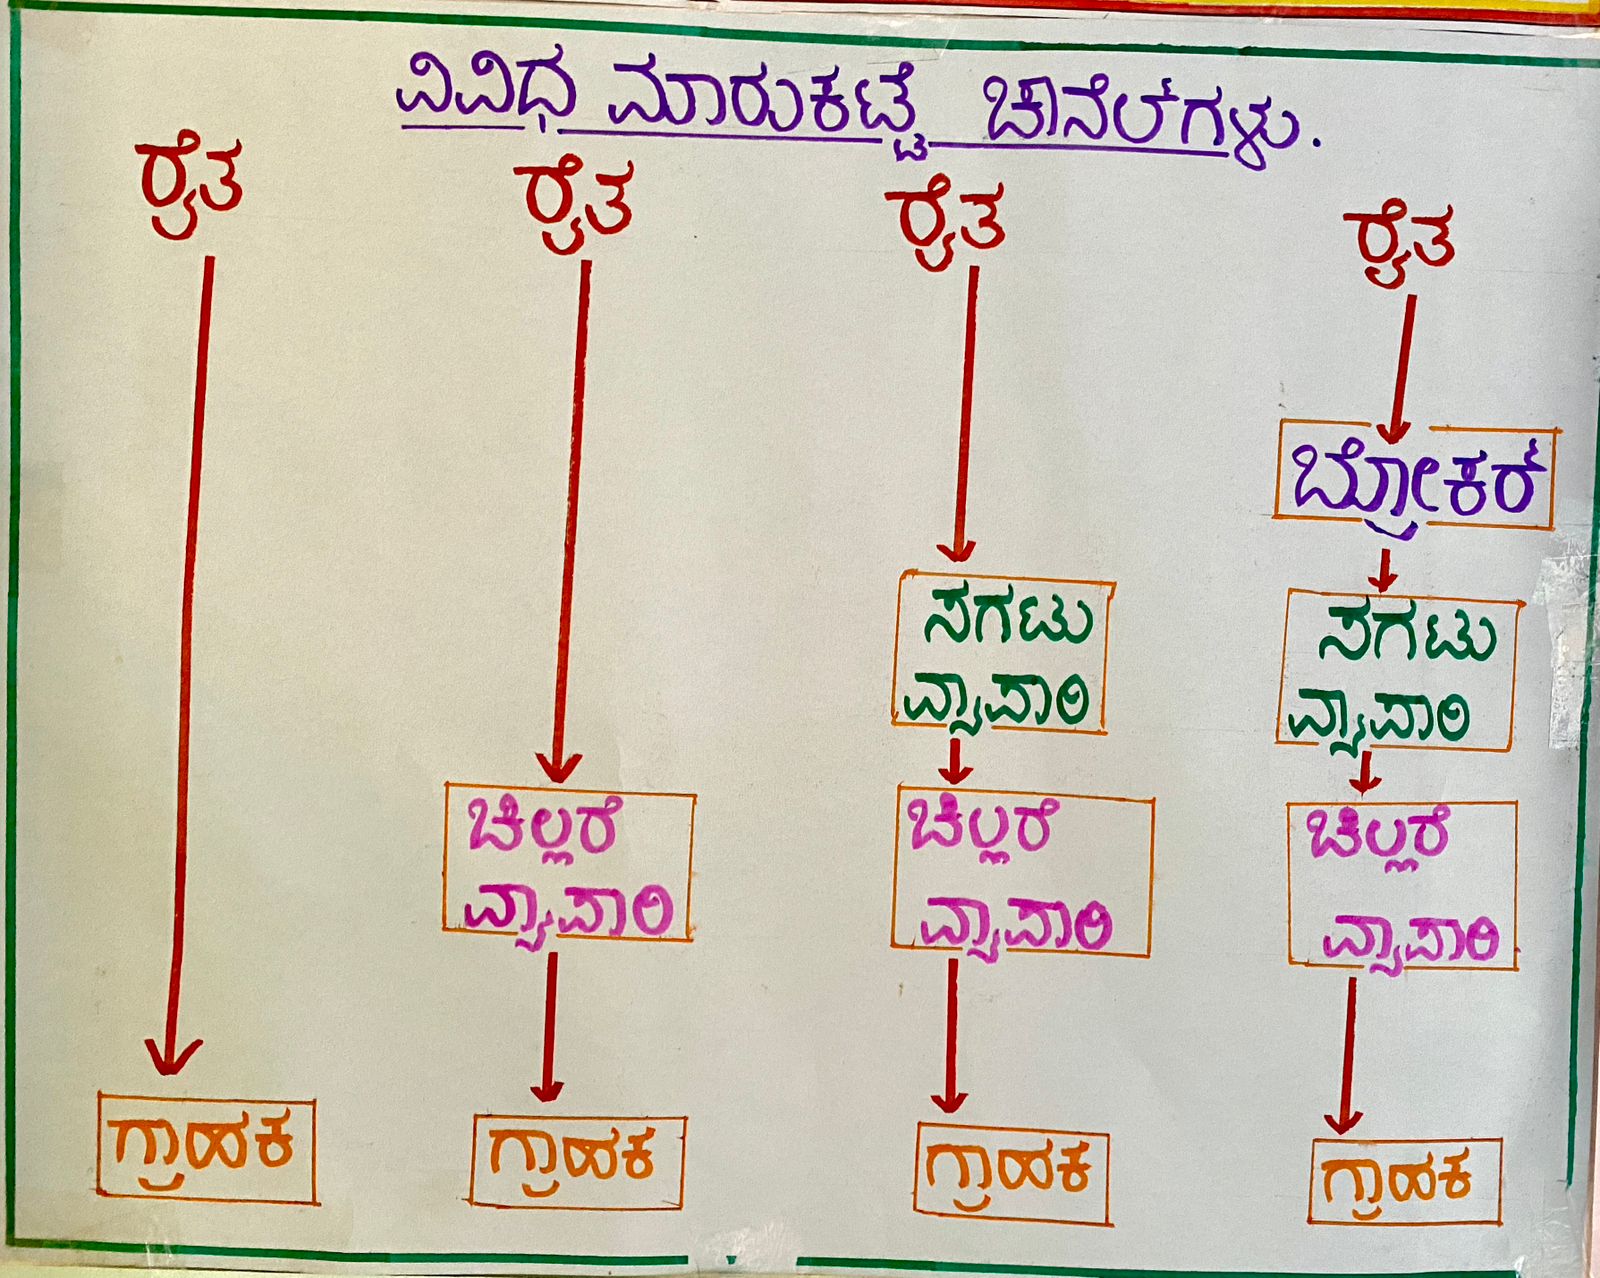 ವಿವಿಧ ಮಾರುಕಟ್ಟೆ ಚಾನೆಲ್‌ಗಳು.
ರೈತ
ಗ್ರಾಹಕ
ರೈತ
ಚಿಲ್ಲರೆ
ವ್ಯಾಪಾರಿ
ಗ್ರಾಹಕ
ರೈತ
ಸಗಟು
ವ್ಯಾಪಾರಿ
ಚಿಲ್ಲರೆ
ವ್ಯಾಪಾರಿ
ಗ್ರಾಹಕ
ರೈತ
ಬ್ರೋಕರ್
ಸಗಟು
ವ್ಯಾಪಾರಿ
ಚಿಲ್ಲರೆ
ವ್ಯಾಪಾರಿ
ಗ್ರಾಹಕ